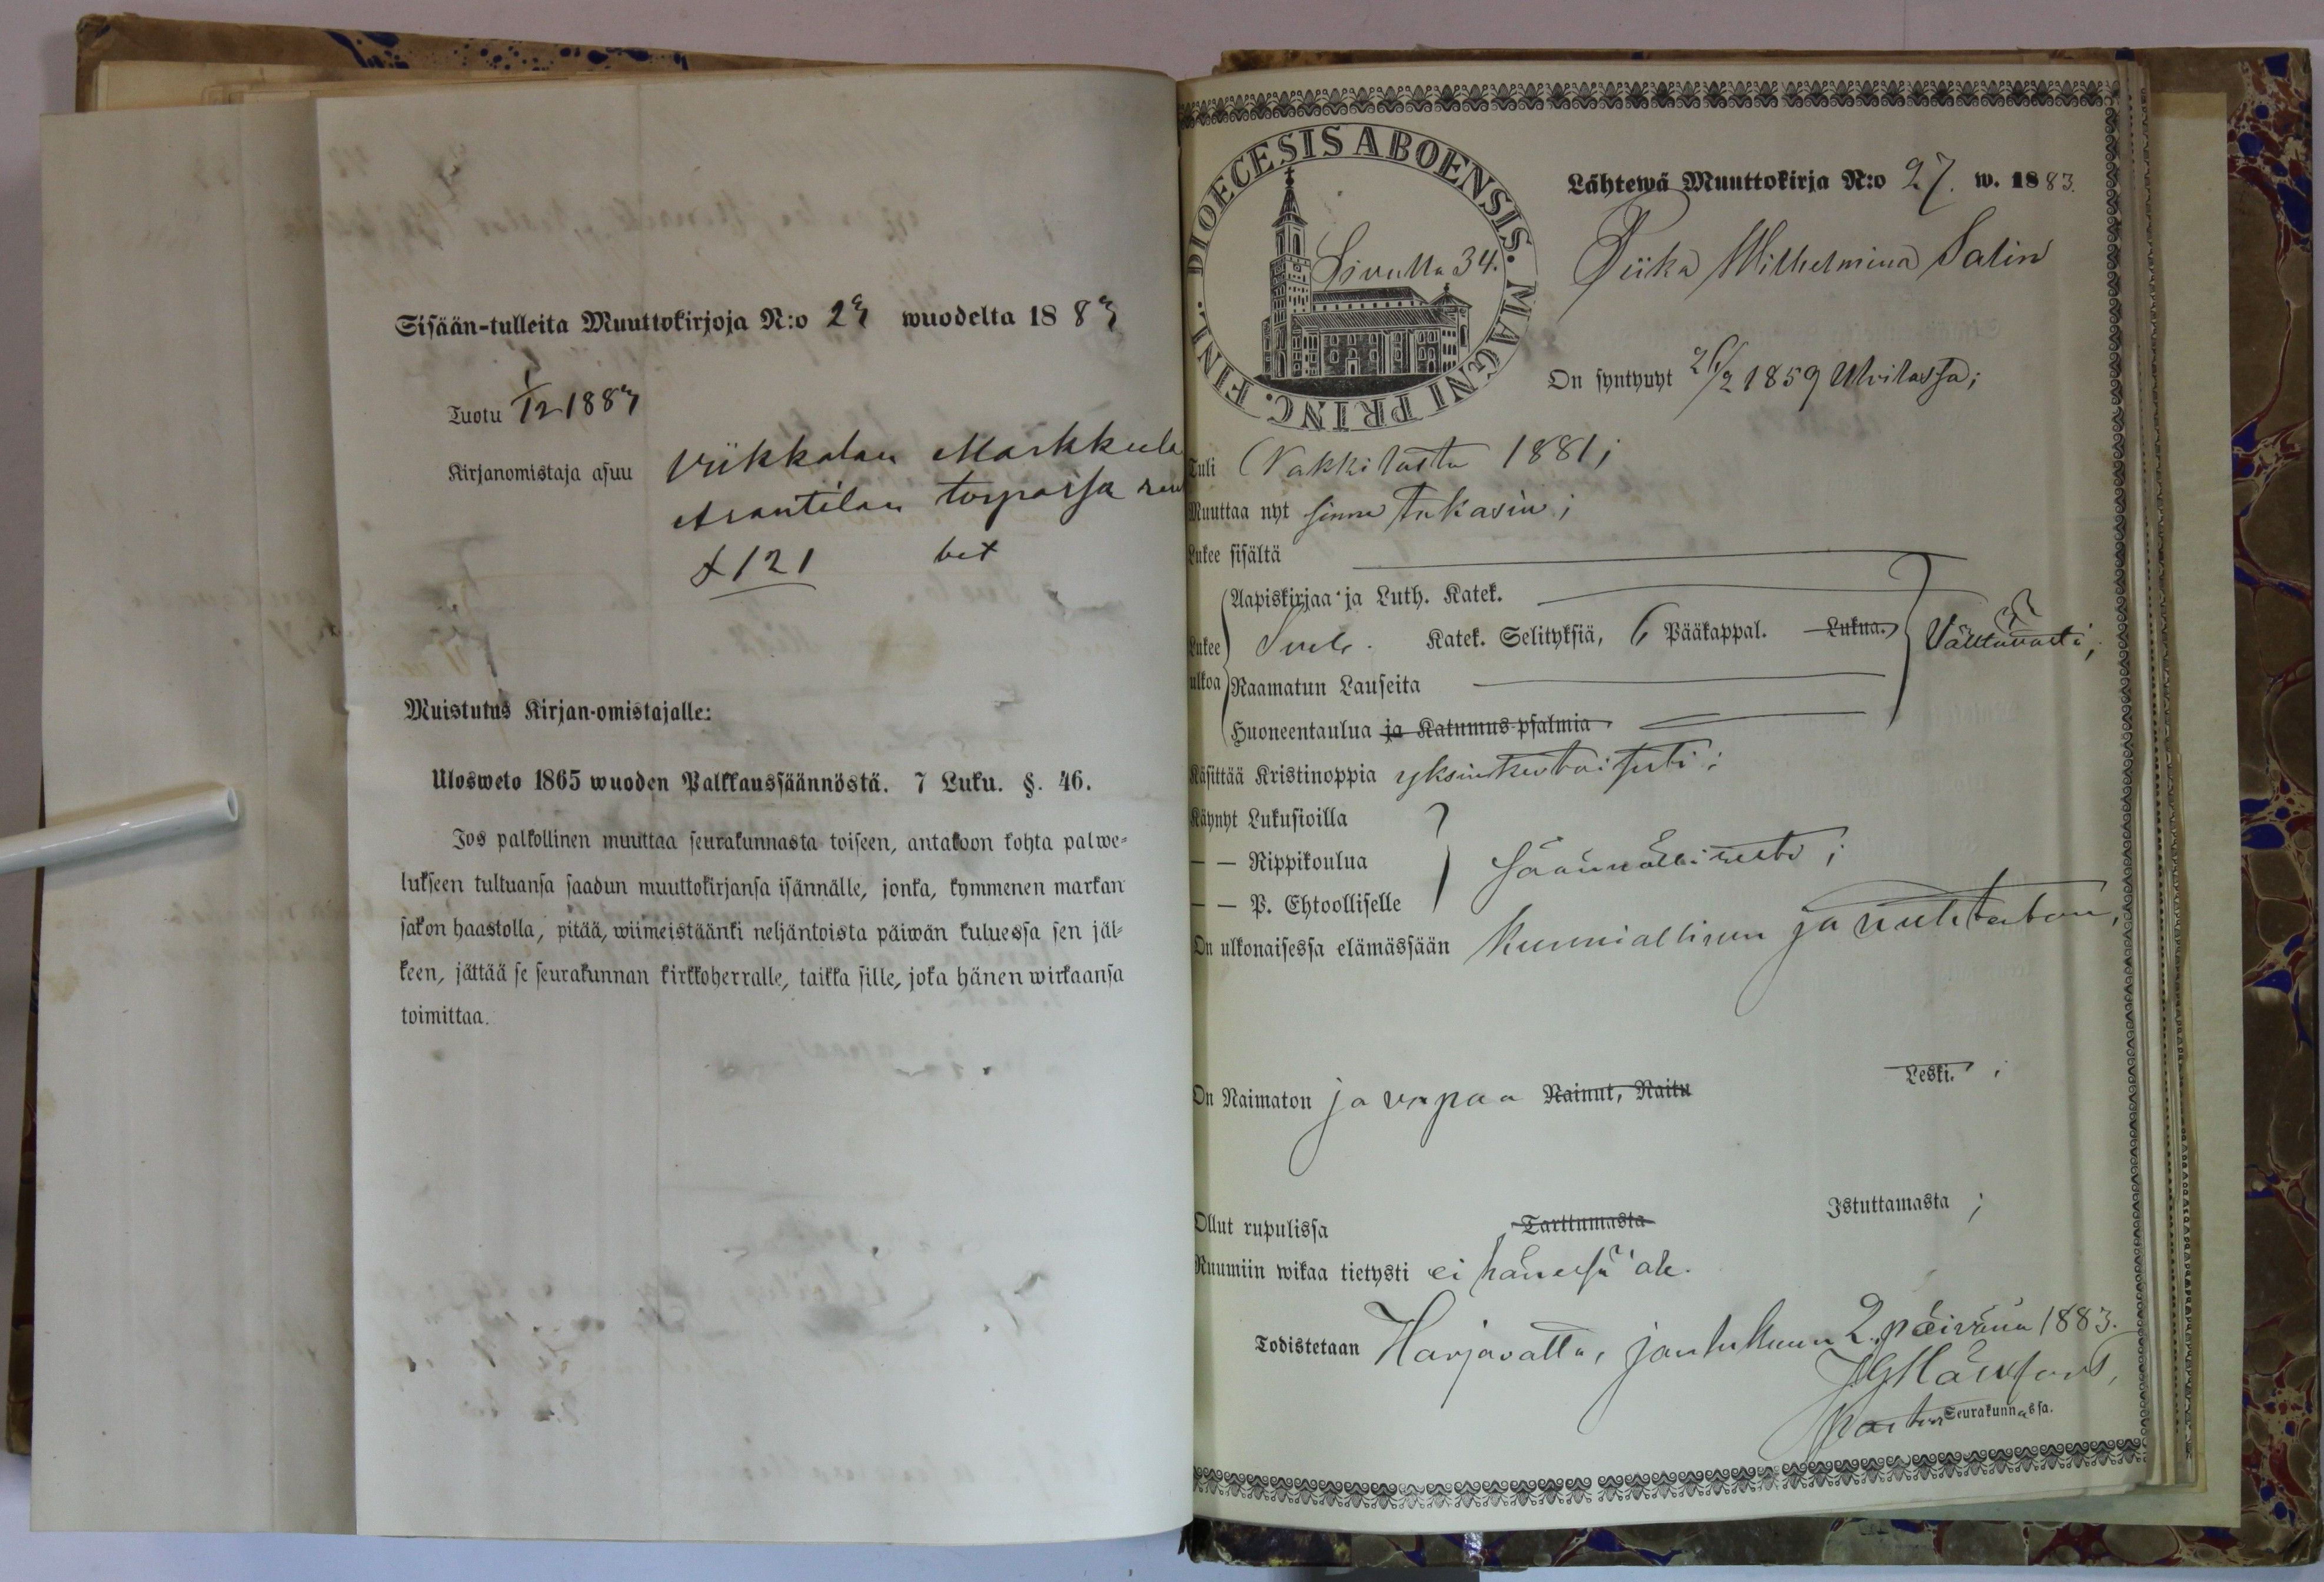 Sisään-tulleita Muuttokirjoja N:o 23 wuodelta 1883
Tuotu 1/12 1883
Kirjanomistaja asuu Viikkalan Markkula
Arantilan torpassa
121 bet
Muistutus Kirjan-omistajalle:
Ulosweto 1865 wuoden Palkkaussäännöstä. 7 Luku. §. 46.
Jos palkollinen muuttaa seurakunnasta toiseen, antakoon kohta palwe-
lukseen tultuansa saadun muuttokirjansa isännälle, jonka, kymmenen markan
sakon haastolla, pitää, wiimeistäänki neljäntoista päiwän kuluessa sen jäl-
keen, jättää se seurakunnan kirkkoherralle, taikka sille, joka hänen wirkaansa
toimittaa.
DIOECESIS ABOENSIS. MAGNI PRINC. FINL.
Sivulta 34.
Lähtewä Muuttokirja N:o 27. w. 1883.
Piika Wilhelmina Salin
On syntynyt 26/2 1859 Ulvilassa;
Tuli Nakkilasta 1881;
Muuttaa nyt sinne takasin;
Lukee sisältä
Aapiskirjaa ja Luth. Katek.
Lukee ulkoa Katek. Selityksiä, 6 Pääkappal. Lukua. Välttävästi;
Raamatun Lauseita
Huoneentaulua ja Katumus-psalmia
Käsittää Kristinoppia yksinkertaisesti;
Käynyt Lukusioilla
— — Rippikoulua säännöllisesti;
— — P. Ehtoolliselle
On ulkonaisessa elämässään kunniallinen ja nuhteeton,
On Naimaton ja vapaa Nainut, Naitu Leski. ;
Ollut rupulissa Tarttumasta Istuttamasta ;
Ruumiin wikaa tietysti ei hänessä ole.
Todistetaan Harjavalta, joulukuun 2. päivänä 1883.
Pastori Seurakunnassa.